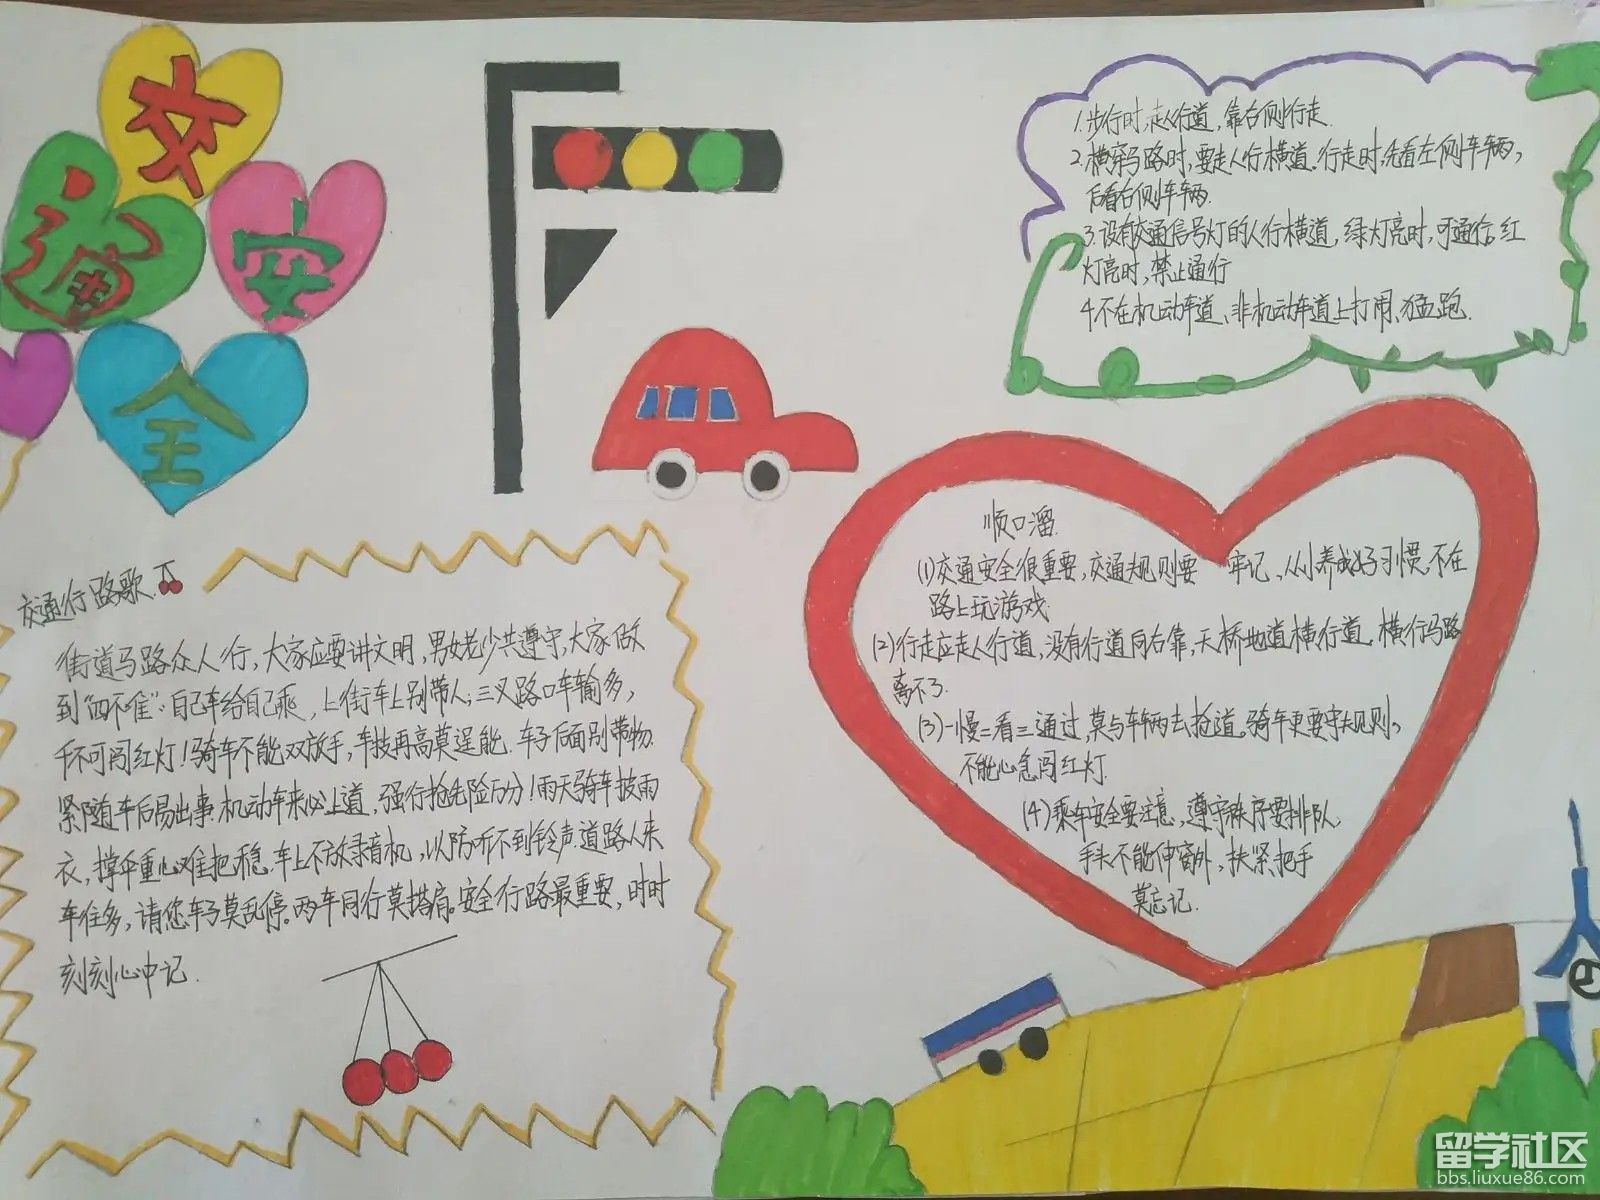 交
通
安
全
1.步行时,走人行道,靠右侧行走.
2.横穿马路时,要走人行横道.行走时,先看左侧车辆,
后看右侧车辆.
3.设有交通信号灯的人行横道,绿灯亮时,可通行.红
灯亮时,禁止通行
4.不在机动车道、非机动车道上打闹、猛跑.
顺口溜
(1)交通安全很重要,交通规则要 牢记、从小养成好习惯,不在
路上玩游戏.
(2)行走应走人行道,没有行道向右靠,天桥地道横行道,横行马路
离不了.
(3)一慢二看三通过,莫与车辆去抢道.骑车更要守规则,
不能心急闯红灯.
(4)乘车安全要注意,遵守秩序要排队.
手头不能伸窗外,扶紧把手
莫忘记.
交通行路歌.
街道马路众人行,大家应要讲文明,男女老少共遵守,大家做
到"四不准":自己车给自己乘,上街车上别带人;三叉路口车输多,
千不可闯红灯!骑车不能双放手,车技再高莫逞能.车子后面别带物.
紧随车后易出事.机动车来必上道,强行抢先险万分!雨天骑车披雨
衣,撑伞重心难把稳.车上不放录音机,以防听不到铃声.道路人来
车往多,请您车子莫乱停。两车同行莫搭肩。安全行路最重要,时时
刻刻心中记.
留学社区
bbs.liuxue86.com